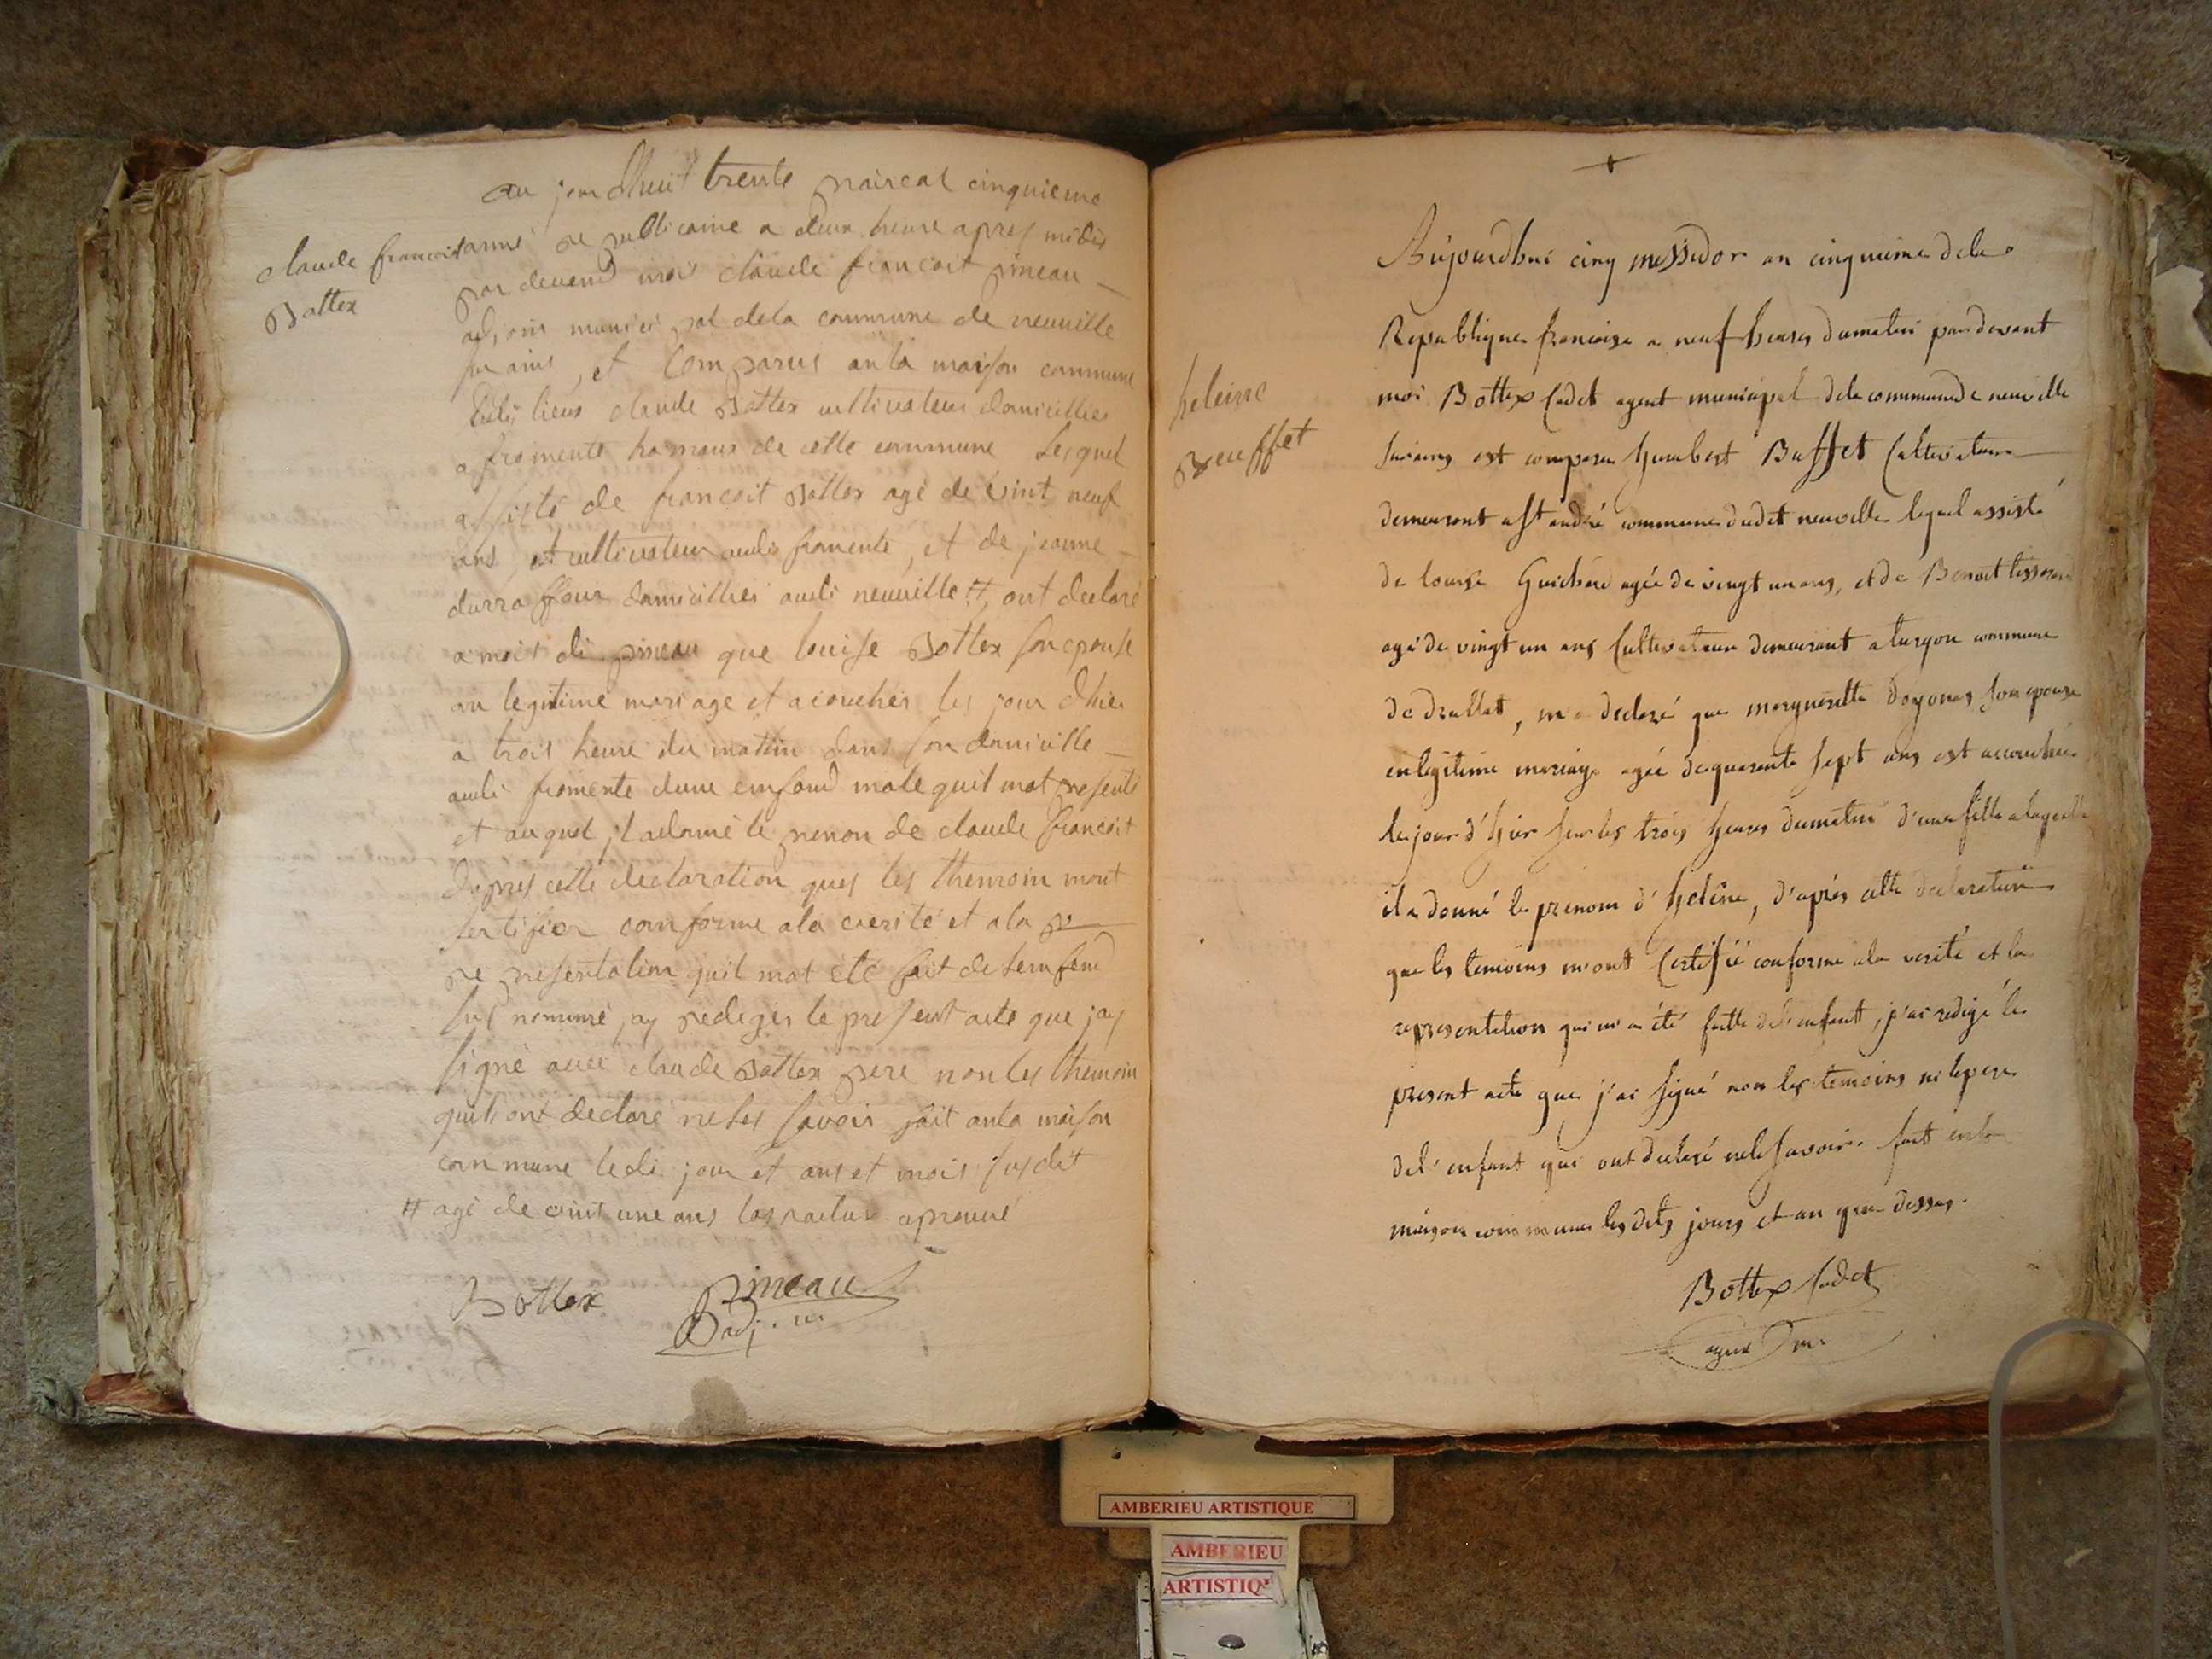 au jour dhuit trente praireal cinquieme
claude francoit
Bottex
anné republicaine a deux heure apres midis
par devend mois claude francoit pineau
adjoin municipal dela commune de neuville
sur ains, et comparus anla maison commune
dudi lieus claude Bottex cultivateur domicillies
a fromente hamaus de cette commune lequel
assisté de francoit Bottex agé de vint neuf
ans, et cultivateur audi fromente, et de jeanne
domicilliés audi neuville #, ont declaré
a mois di pineau que louise Bottex son epouse
an legitime mariage et acouchés les jour dhier
a trois heure du matin dans son domicille
audi fromente dune emfand male quil mat presenté
et auquel jl adonné le prenon de claude francoit
dapres cette declaration ques les themoin mont
sertifier comforme ala verité et ala re
representation quil mat eté fait de lemfend
sus nommé jay rediger le present acte que jay
signé avec claude Bottex pere non les themoin
quils ont declaré neles savoir fait anla maison
commune ledi jour et ans et mois susdit
# agé de vint une ans aprouvé
Bottex
pineau
adjoin
+
Aujourdhui cinq messidor an cinquieme dela
Republique francaise a neuf heures dumatin pardevant
heleine
Beuffet
moi Bottex Cadet agent municipal dela commune de neuville
surains est comparu humbert Buffet Cultivateur
demeurant a St andré commune dudit neuville lequel assisté
de louise Guichard agée de vingt un ans, et de Benoit tisserand
agé de vingt un ans Cultivateur demeurant a turgon commune
de druillat, m'a declaré que margueritte son epouse
enlegitime mariage agée dequarante sept ans est accouchée
le jour d'hier sur les trois heures dumatin d'une fille alaquelle
il a donné le prenom d'heléne, d'aprés cette declaration
que les temoins m'ont Certifié conforme ala verité et la
representation qui m'a été faitte del'enfant, j'ai redigé le
present acte que j'ai signé non les temoins ni lepere
del'enfant qui ont declaré nele savoir. fait enla
maison commune les dits jours et an que dessus.
Bottex Cadet
agent m.
AMBERIEU ARTISTIQUE
AMBERIEU
ARTISTIQ